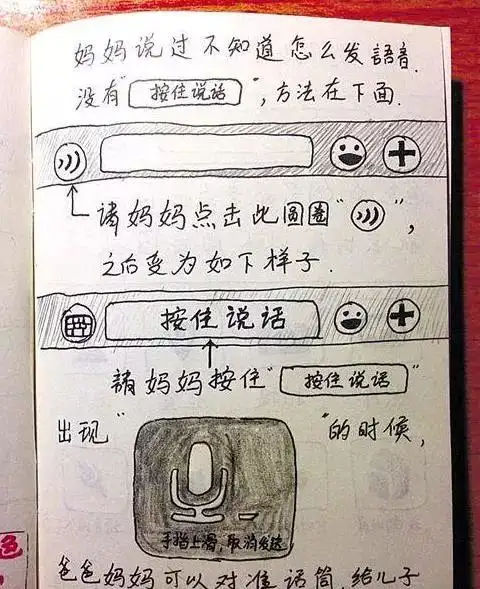 妈妈说过不知道怎么发語音.
没有“按住说话”,方法在下面.
請妈妈点击此圆圈“ ”,
之后变为如下样子.
按住说话
請妈妈按住“按住说话”
出现“ ”的时候,
手指上滑,取消发送
爸爸妈妈可以对准话筒,给儿子